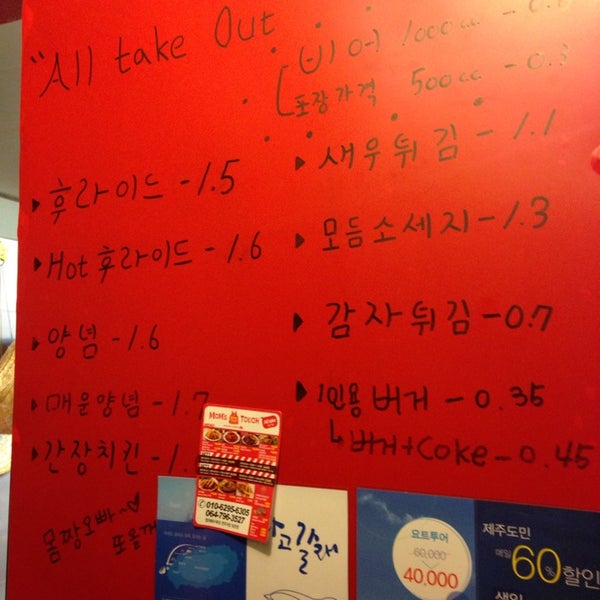 "All take Out
비어 1000cc - 0.
포장가격 500cc - 0.3
▸ 후라이드 - 1.5
▸ Hot 후라이드 - 1.6
▸ 양념 - 1.6
▸ 매운양념 - 1.7
▸ 간장치킨 - 1.
▸ 새우튀김 - 1.1
▸ 모듬소세지 - 1.3
▸ 감자튀김 - 0.7
▸ 1인용 버거 - 0.35
↳ 버거+Coke - 0.45
몸짱오빠~♡
또올게
MOM'S TOUCH
010-6295-6305
064-796-3527
고갈래
요트투어
60,000
40,000
제주도민
매일 60% 할인
생일